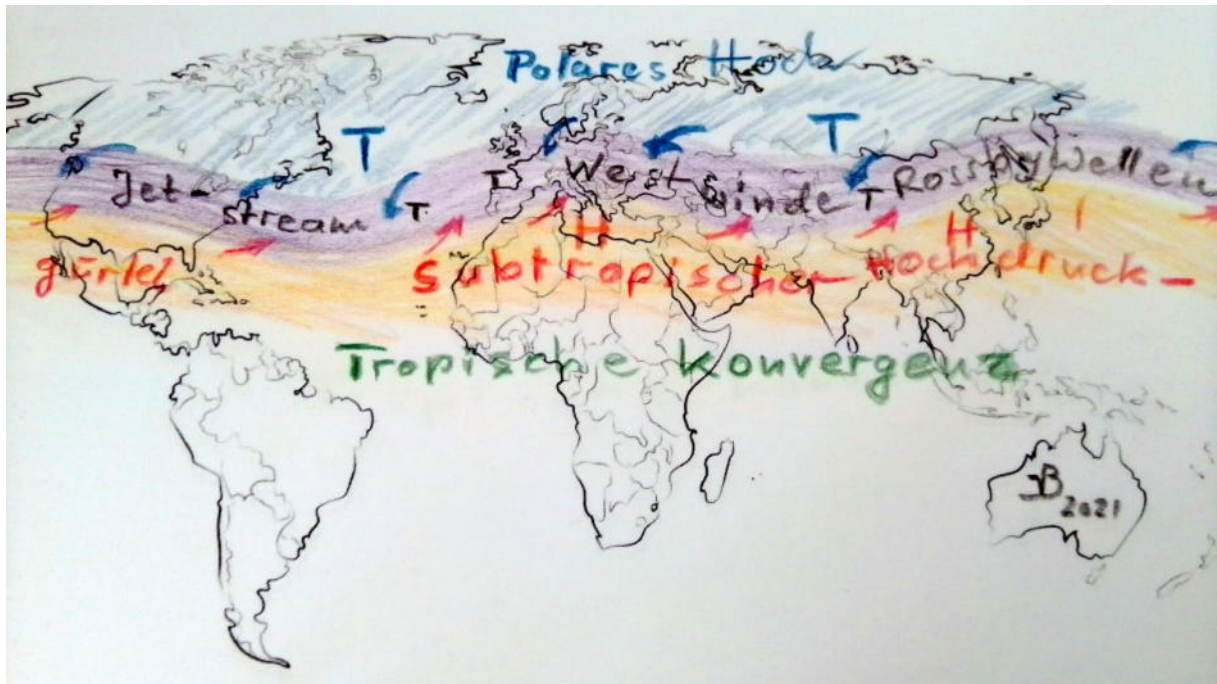 Polares Hoch
T
T
Jet-
stream
T
T
West
winde
T
Rossbywellen
H
H
gürtel
Subtropischer Hochdruck-
Tropische Konvergenz
JB
2021